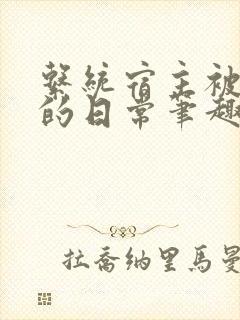 繫統宿主被
的日常筆趣
拉喬納里馬曼